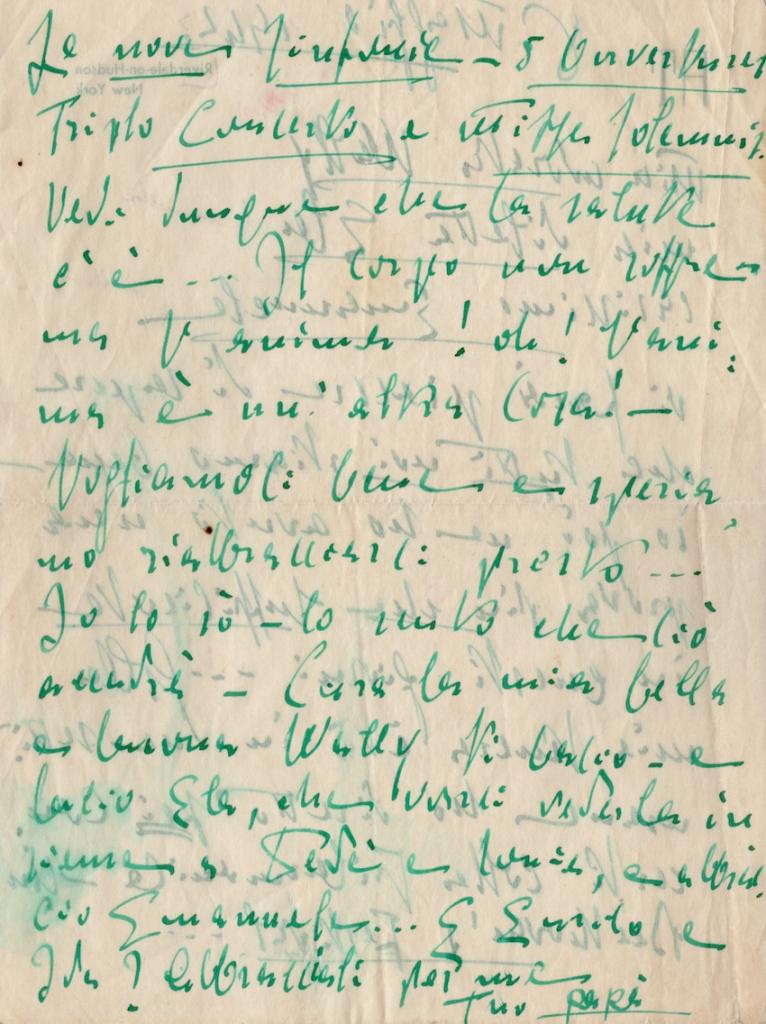 Le nove Sinfonie – 5 Ouvertures
Triplo Concerto e Missa Solemnis.
Vedi dunque che la salute
c'è è... Il corpo non soffre –
ma l'anima! oh! l'ani,
ma è un'altra cosa! –
Vogliamoci bene e speria,
mo riabbracciarci presto...
Io lo sò – lo sento che ciò
accadrà – Cara la mia bella
e buona Wally ti bacio – e
bacio Ela, che vorrei vederla in
sieme a Fedè e Sonia, e abbrac,
cio Emanuela... E Enrico e
Ida? abbracciali per me
tuo papà
Riverdale-on-Hudson
New York